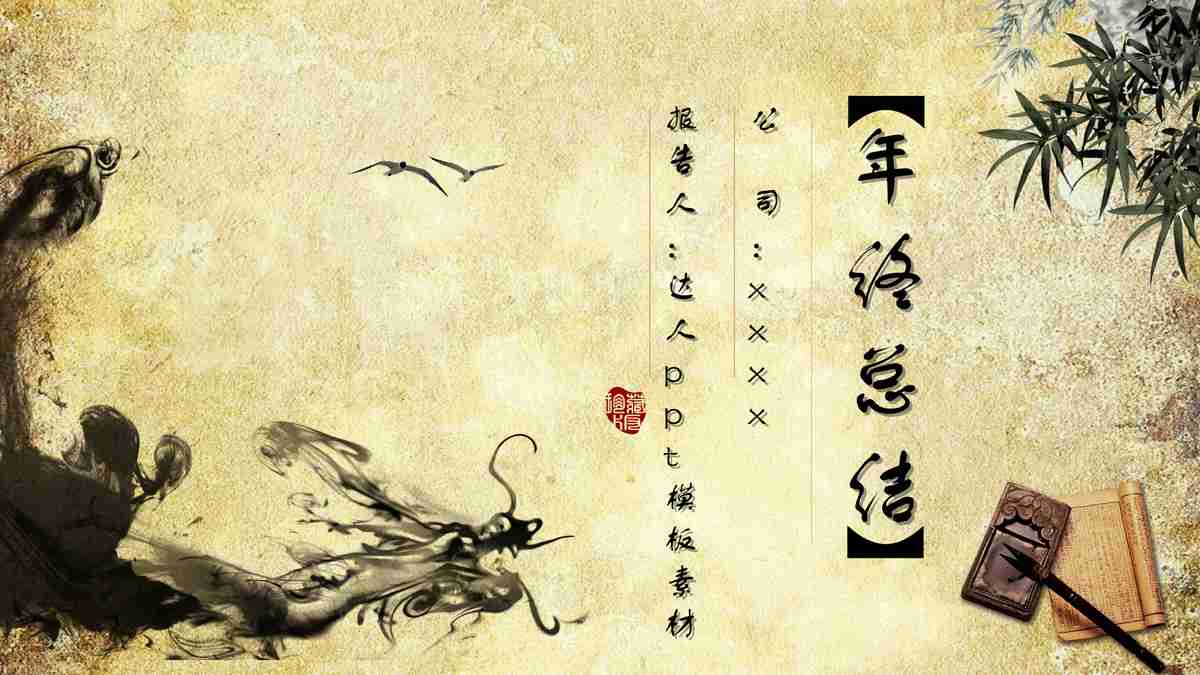 【年终总结】
公 司：xxxx
报告人：达人ppt模板素材